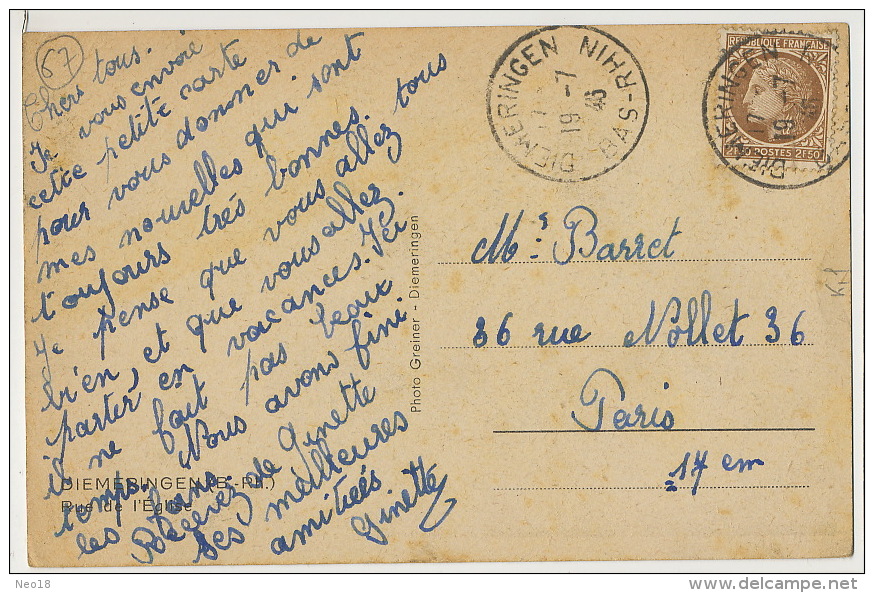 67
Chers tous.
Je vous envoie
cette petite carte
pour vous donner de
mes nouvelles qui sont
toujours très bonnes.
Je pense que vous allez tous
bien, et que vous allez
partir en vacances. Ici
il ne fait pas beau
temps. Nous avons fini
les foins
Recevez de Ginette
ses meilleures
amitiés
Ginette
DIEMERINGEN (B.-Rh.)
Rue de l'Église
Photo Greiner - Diemeringen
DIEMERINGEN BAS-RHIN
17
19 -7
45
REPUBLIQUE FRANÇAISE
2F50 POSTES 2F50
DIEMERINGEN
17
19 -7
45
Mr. Barret
36 rue Nollet 36
Paris
17 em
Neo18
http://www.delcampe.net